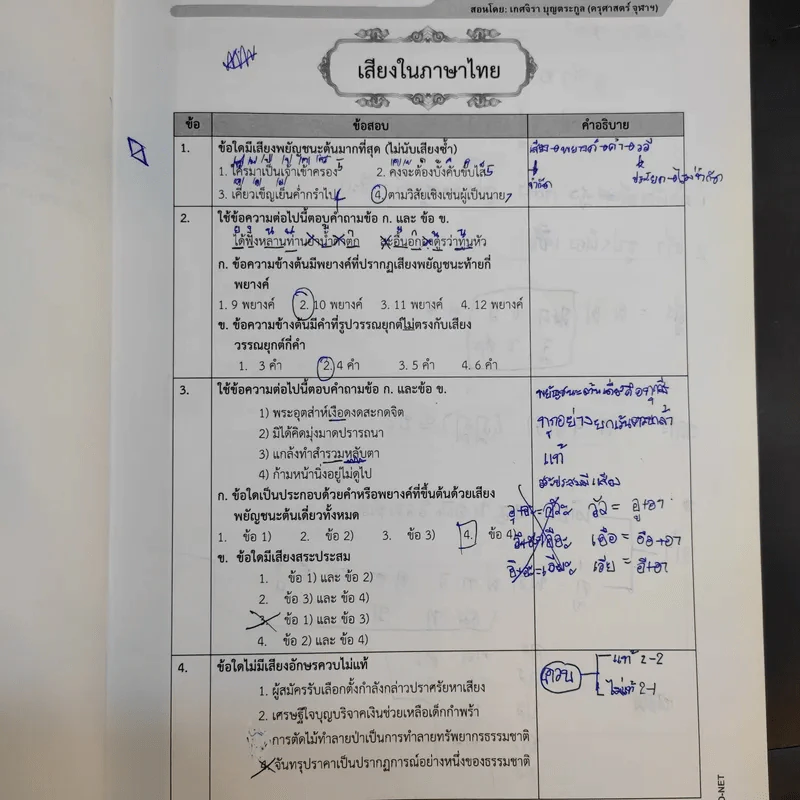 สอนโดย: เกศจิรา บุญตระกูล (ครุศาสตร์ จุฬาฯ)
เสียงในภาษาไทย
ข้อ ข้อสอบ คำอธิบาย
1. ข้อใดมีเสียงพยัญชนะต้นมากที่สุด (ไม่นับเสียงซ้ำ)
1. ใคร่มาเป็นเจ้าเข้าครอง 5 2. คงจะต้องบังคับขับไส 5
3. เคี่ยวเข็ญเย็นค่ำกรำไป 4. ตามวิสัยเชิงเช่นผู้เป็นนาย 7
2. ใช้ข้อความต่อไปนี้ตอบคำถามข้อ ก. และ ข้อ ข.
ได้ฟังหลานท่าน
ก. ข้อความข้างต้นมีพยางค์ที่ปรากฏเสียงพยัญชนะท้ายกี่
พยางค์
1. 9 พยางค์ 2. 10 พยางค์ 3. 11 พยางค์ 4. 12 พยางค์
ข. ข้อความข้างต้นมีคำที่รูปวรรณยุกต์ไม่ตรงกับเสียง
วรรณยุกต์กี่คำ
1. 3 คำ 2. 4 คำ 3. 5 คำ 4. 6 คำ
3. ใช้ข้อความต่อไปนี้ตอบคำถามข้อ ก. และข้อ ข.
1) พระอุตส่าห์เงือดงดสะกดจิต
2) มิได้คิดมุ่งมาดปรารถนา
3) แกล้งทำสำรวมหลับตา
4) ก้ามหน้านิ่งอยู่ไม่ดูไป
ก. ข้อใดเป็นประกอบด้วยคำหรือพยางค์ที่ขึ้นต้นด้วยเสียง
พยัญชนะต้นเดี่ยวทั้งหมด
1. ข้อ 1) 2. ข้อ 2) 3. ข้อ 3) 4. ข้อ 4)
ข. ข้อใดมีเสียงสระประสม
1. ข้อ 1) และ ข้อ 2)
2. ข้อ 3) และ ข้อ 4)
3. ข้อ 1) และ ข้อ 3)
4. ข้อ 2) และ ข้อ 4)
แท้
สระประสมมี เสียง
อัวะ อัว = อู+อา
เอือะ เอือ = อือ+อา
เอียะ เอีย = อี+อา
4. ข้อใดไม่มีเสียงอักษรควบไม่แท้
1. ผู้สมัครรับเลือกตั้งกำลังกล่าวปราศรัยหาเสียง
2. เศรษฐีใจบุญบริจาคเงินช่วยเหลือเด็กกำพร้า
การตัดไม้ทำลายป่าเป็นการทำลายทรัพยากรธรรมชาติ
4. จันทรุปราคาเป็นปรากฏการณ์อย่างหนึ่งของธรรมชาติ
ควบ แท้ 2-2
ไม่แท้ 2-1
O-NET